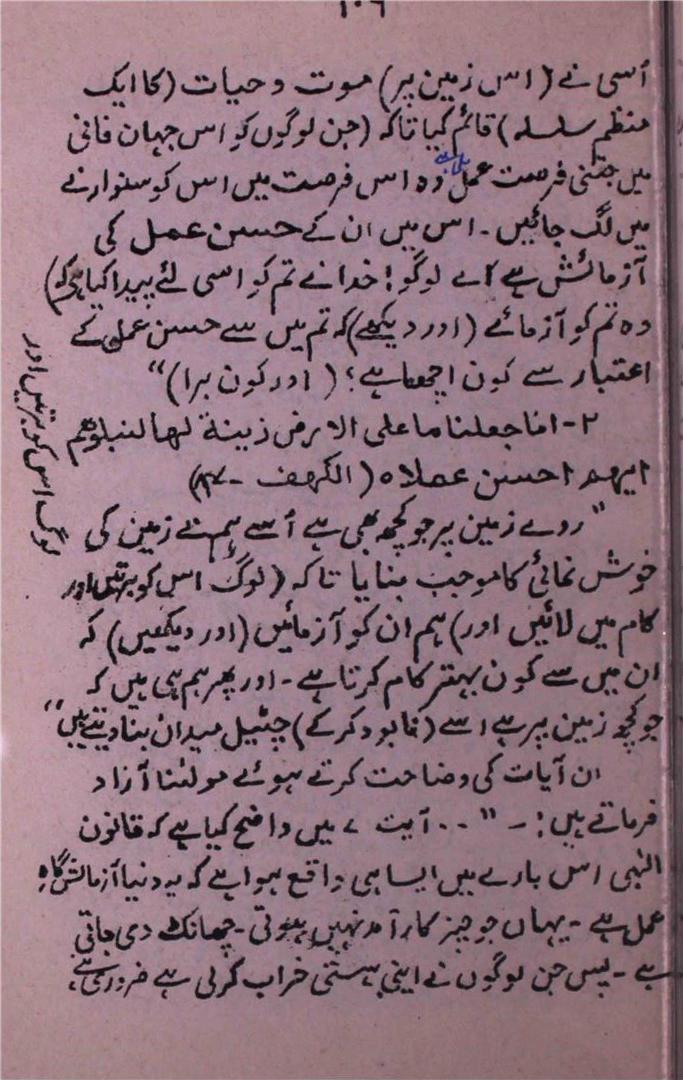 ۱۰۶
اُسی نے (اس زمین پر) موت و حیات (کا ایک
منظم سلسلہ) قائم کیا تاکہ (جن لوگوں کو اس جہان فانی
میں جتنی فرصت عمل ملی ہے وہ اس فرصت میں اس کو سنوارنے
میں لگ جائیں۔ اس میں ان کے حسن عمل کی
آزمائش ہے اے لوگو! خدا نے تم کو اسی لئے پیدا کیا ہے کہ)
وہ تم کو آزمائے (اور دیکھے) کہ تم میں سے حسن عمل کے
اعتبار سے کون اچھا ہے؟ (اور کون برا)“
۲- انا جعلنا ما علی الارض زینة لها لنبلوهم
ایهم احسن عملاه (الکهف -۷)
”روے زمین پر جو کچھ بھی ہے اُسے ہم نے زمین کی
خوش نمائی کا موجب بنایا تاکہ (لوگ اس کو برتیں اور
کام میں لائیں اور) ہم ان کو آزمائیں (اور دیکھیں) کہ
ان میں سے کون بہتر کام کرتا ہے۔ اور پھر ہم ہی ہیں کہ
جو کچھ زمین پر ہے اسے (نابود کرکے) چٹیل میدان بنا دیتے ہیں“
ان آیات کی وضاحت کرتے ہوئے مولٰنا آزاد
فرماتے ہیں:- ”۔۔ آیت ۷ میں واضح کیا ہے کہ قانون
الٰہی اس بارے میں ایسا ہی واقع ہوا ہے کہ یہ دنیا آزمائش گاہِ
عمل ہے۔ یہاں جو چیز کارآمد نہیں ہوتی۔ چھانٹ دی جاتی
ہے۔ پس جن لوگوں نے اپنی ہستی خراب کرلی ہے ضروری ہے،
لوگ اس کو برتیں اور